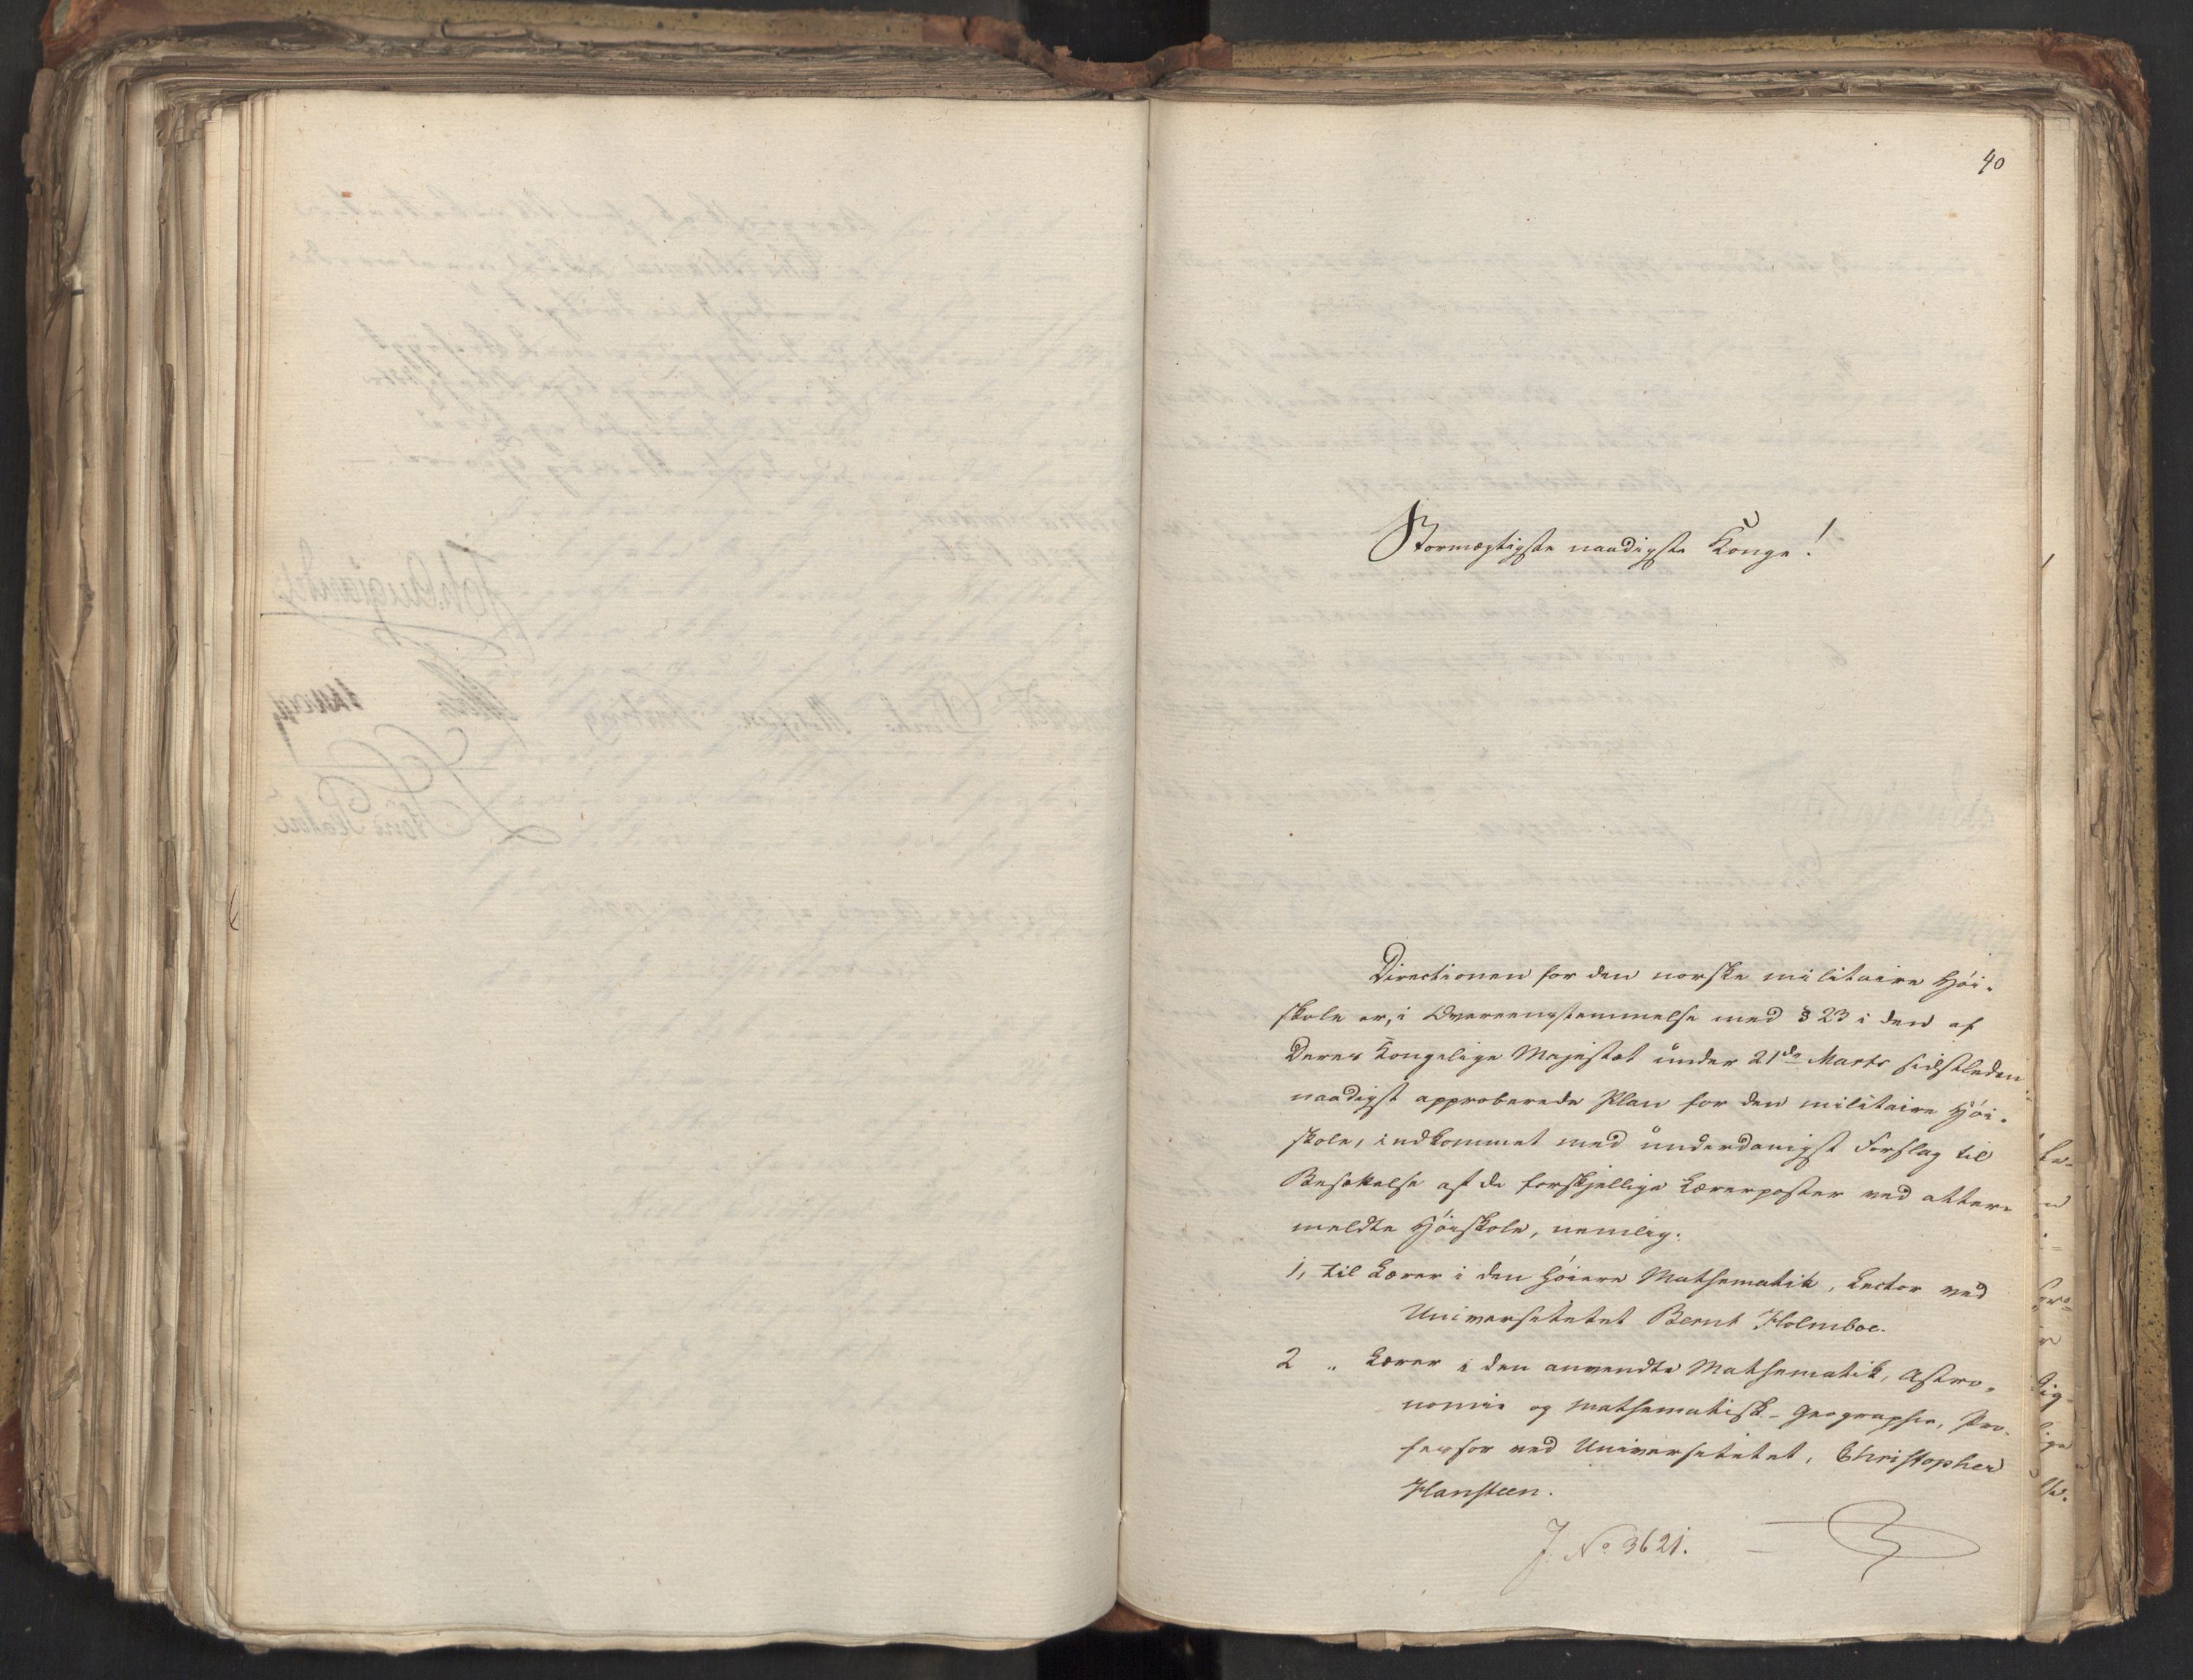 40
Stormægtigste naadigste Konge!
Directionen for den norske militaire Høi-
skole er, i Overeensstemmelse med § 23 i den af
Deres Kongelige Majestæt under 21de Marts sidstleden
naadigst approberede Plan for den militaire Høi-
skole, indkommet med underdanigst Forslag til
Besættelse af de forskjellige Lærerposter ved atter-
meldte Høiskole, nemlig:
1, til Lærer i den høiere Mathematik, Lector ved
Universitetet Bernt Holmboe.
2 " Lærer i den anvendte Mathematik, Astro-
nomie og mathematisk-Geographie, Pro-
fessor ved Universitetet, Christopher
Hansteen.
J. No 3621.